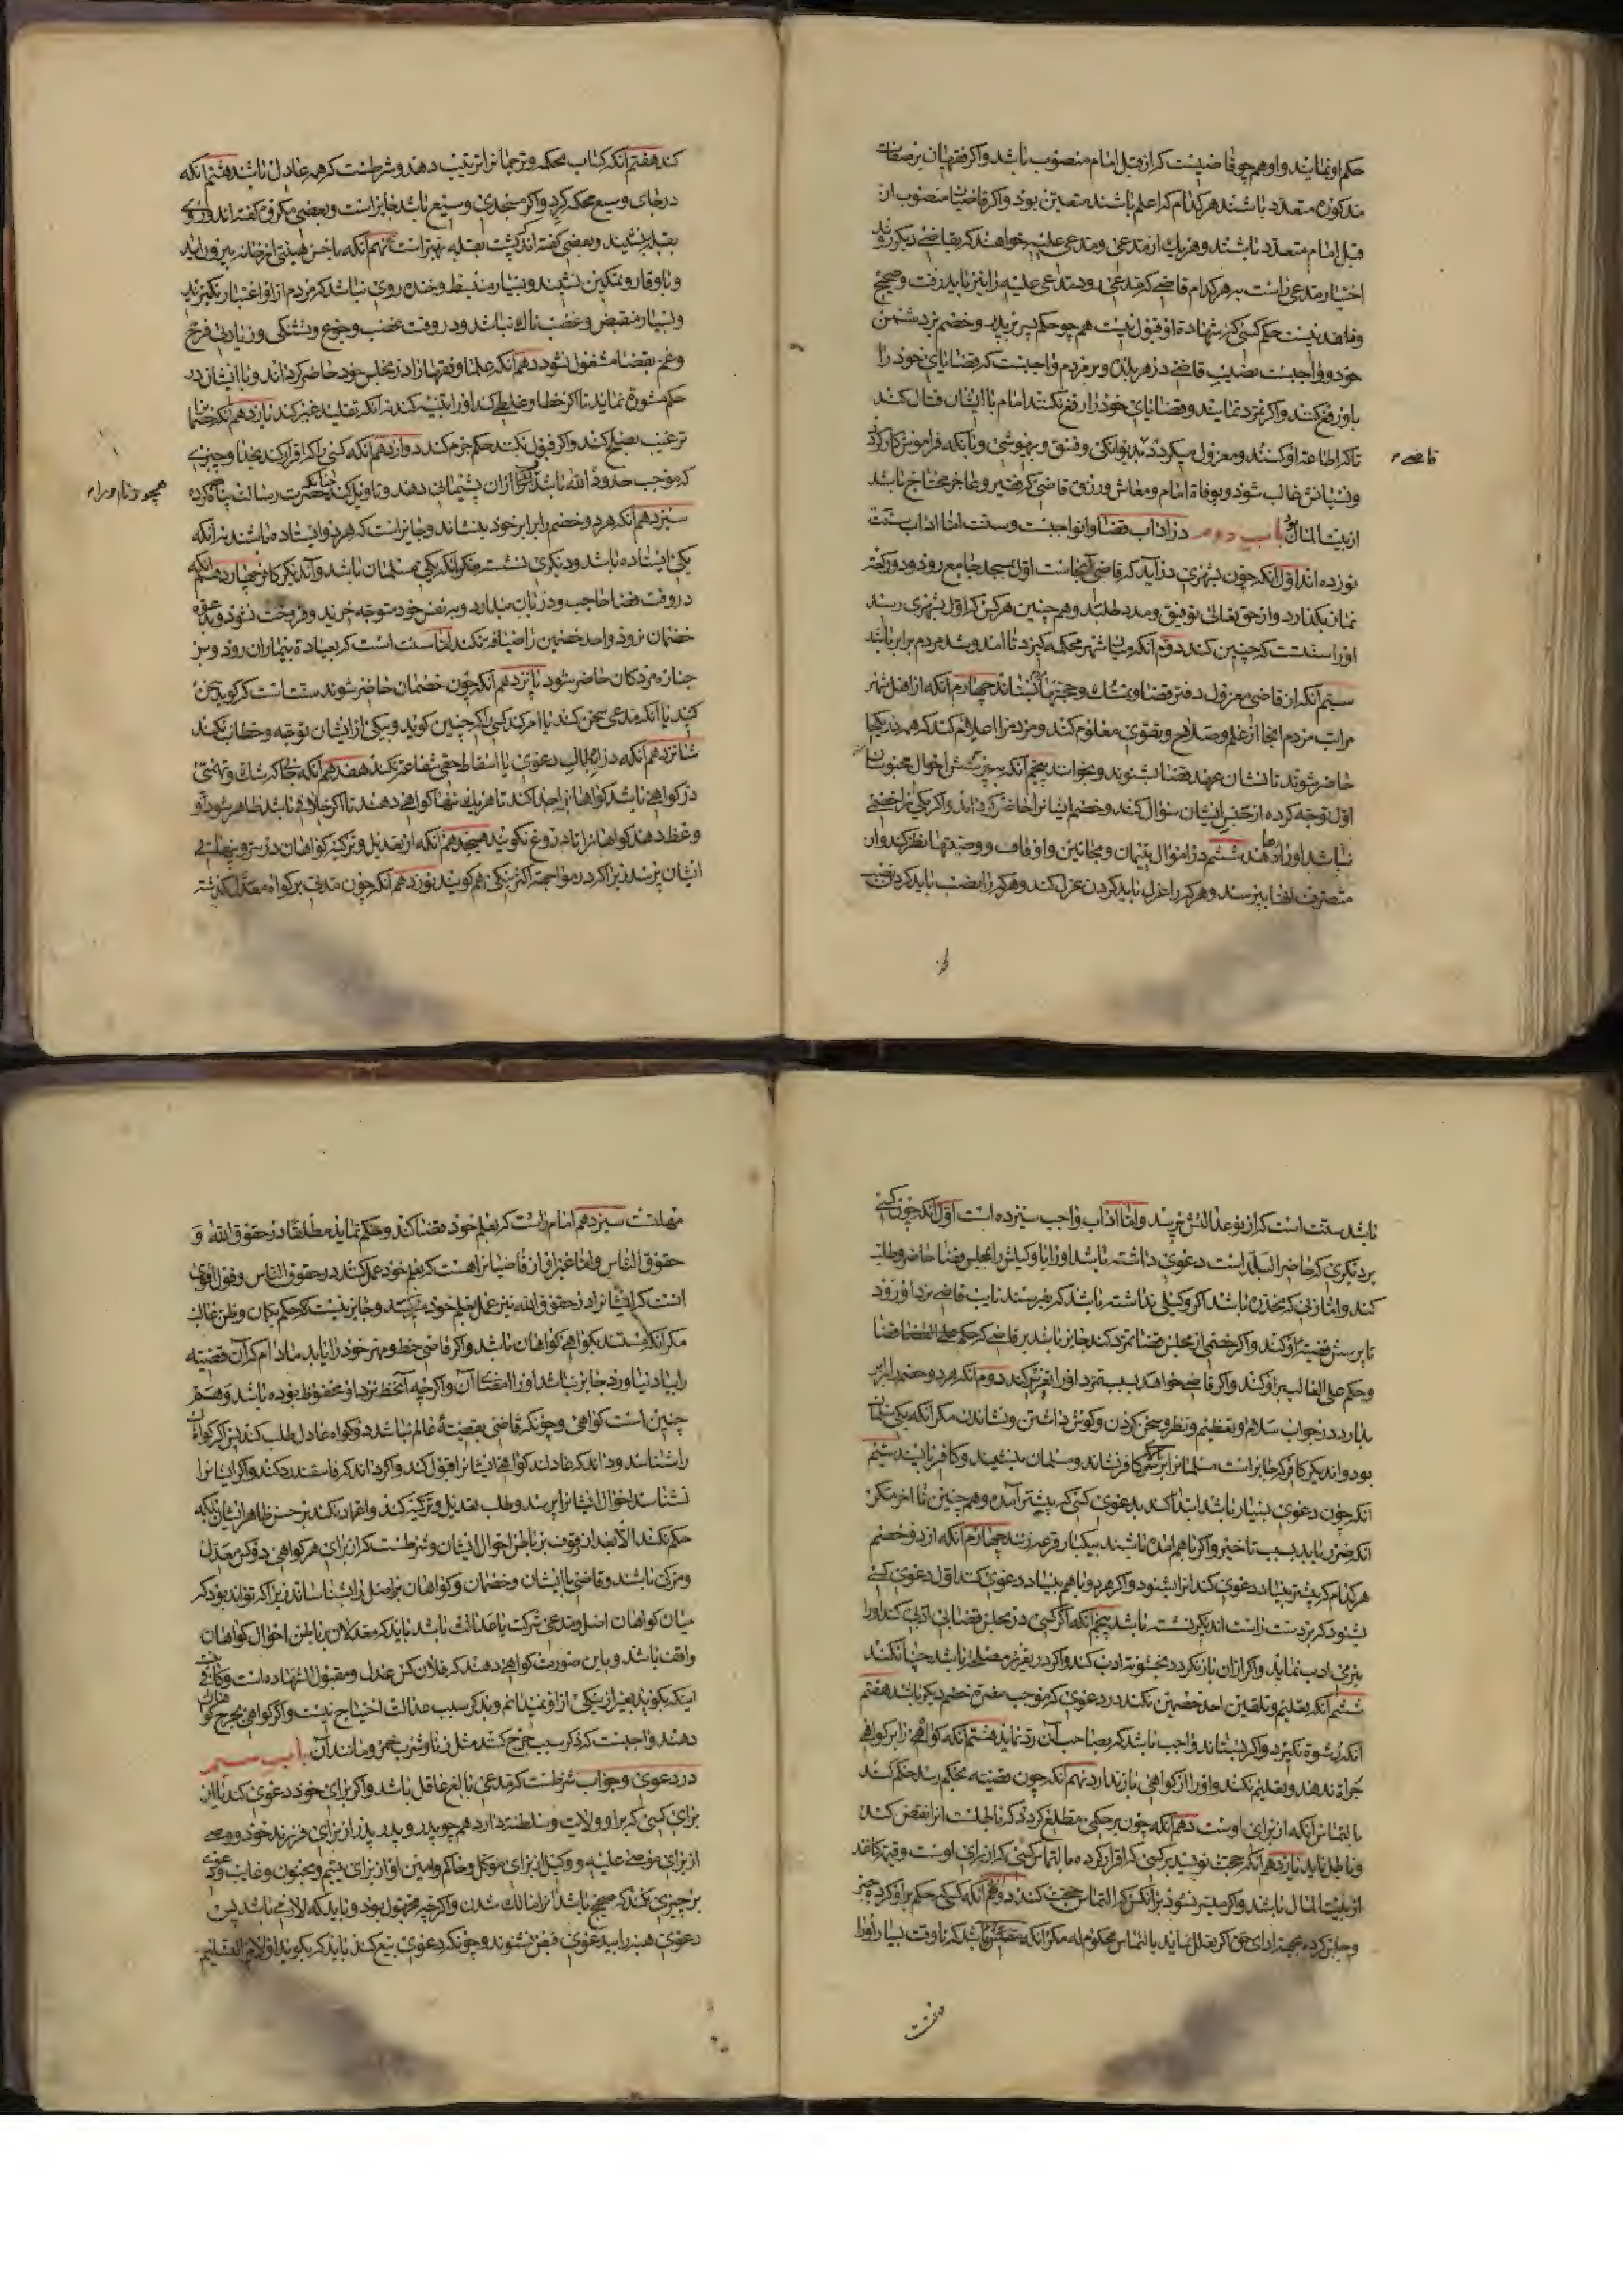 حکم او نمایند و او هم چو قاضیست که از قبل امام منصوب باشد و اگر فقیهان بر صفات
مذکوره متعدد باشند هر کدام که اعلم باشند متعین بود و اگر قاضیان منصوب از
قبل امام متعدد باشند و هر یک از مدعی و مدعی علیه خواهند که بقاضی دیگر روند
اختیار مدعی راست بهر کدام قاضی که مدعی رود مدعی علیه را نیز باید رفت و صحیح
و نافذ نیست حکم کسی که شهادة او قبول نیست هم چو حکم پسر بر پدر و خصم بر دشمن
خود و واجبست نصب قاضی در هر بلده و بر مردم واجبست که قضایای خود را
باو رفع کنند و اگر تمرد نمایند و قضایای خود را رفع نکنند امام با ایشان قتال کند
تا که اطاعة او کنند و معزول میگردد بدیوانگی و فسق و بیهوشی و بآنکه فراموش کار گردد
قاضی
و نسیانش غالب شود و بوفاة امام و معاش و رزق قاضی که فقیر و عاجز و محتاج باشد
از بیت المال بود باب دوم در آداب قضا و آنواجبست و سنت اما آداب سنت
نوزده اند اول آنکه چون بشهری در آید که قاضی آنجاست اول بمسجد جامع رود و دو رکعت
نماز بگذارد و از حق تعالی توفیق و مدد طلبد و هم چنین هر کس که اول بشهری رسد
او را سنتست که چنین کند دوم آنکه میان شهر محکمه گیرد تا آمد و شد مردم برابر باشد
سیم آنکه از قاضی معزول دفتر قضا و تمسک و حجتها بستاند چهارم آنکه از اهل شهر
مراتب مردم آنجا از علم و صلاح و تقوی معلوم کند و مردم را اعلام کند که همه در یکجا
حاضر شوند تا نشان عهد قضا بشنوند و بخوانند پنجم آنکه بپرسش احوال محبوسان
اول توجه کرده از حبس ایشان سؤال کند و خصم ایشانرا حاضر گرداند و اگر یکی را خصمی
نباشد او را رها دهد ششم در اموال یتیمان و مجانین و اوقاف و وصیتها نظر کند و از
متصرف آنها بپرسد و هر که را عزل باید کردن عزل کند و هر که را نصب باید کردن نصب
کند هفتم آنکه کتاب محکمه و ترجمانرا ترتیب دهد و شرطست که همه عادل باشند هشتم آنکه
در جای وسیع محکمه گیرد و اگر مسجدی وسیع باشد جایز است و بعضی مکروه گفته اند و روی
بقبله نشیند و بعضی گفته اند پشت بقبله بهتر است نهم آنکه باحسن هیئتی از خانه بیرون آید
و با وقار و تمکین نشیند و بسیار منبسط و خنده روی نباشد که مردم از او اعتبار نگیرند
و بسیار منقبض و غضب ناک نباشد و در وقت غضب و جوع و تشنگی و زیادتی فرح
و غم بقضا مشغول نشود دهم آنکه علما و فقها را در مجلس خود حاضر گرداند و با ایشان در
حکم مشورة نماید تا اگر خطا و غلطی کند او را تنبیه کنند نه آنکه تقلید غیر کند یازدهم آنکه خصما
ترغیب بصلح کند و اگر قبول نکنند حکم جزم کند دوازدهم آنکه کسی را که اقرار کند بخدا و چیزی
که موجب حدود الله باشد از آن پشیمانی دهد و تاویل کند چنانکه حضرت رسالت پناه کرده
سیزدهم آنکه هر دو خصم را برابر خود بنشاند و جایز است که هر دو ایستاده باشند نه آنکه
یکی ایستاده باشد و دیگری نشسته مگر آنکه یکی مسلمان باشد و آندیگر کافر چهاردهم آنکه
در وقت قضا حاجب و دربان ندارد و بنفس خود متوجه خرید و فروخت نشود و بدعوة
خصمان نرود و احد خصمین را ضیافة نکند اما سنت است که بعیادة بیماران رود و بر
جنازه مردگان حاضر شود پانزدهم آنکه چون خصمان حاضر شوند سنت است که گوید سخن
کنید یا آنکه مدعی سخن کند یا امر کند کسی را که چنین گوید و بیکی از ایشان توجه و خطاب نکند
شانزدهم آنکه در ابطال دعوی یا اسقاط حقی شفاعة نکند هفدهم آنکه جائی که شک و تهمتی
در گواهی باشد گواهانرا جدا کند تا هر یک تنها گواهی دهند تا اگر خلافی باشد ظاهر شود و
وعظ دهد گواهانرا تا دروغ نگویند هیجدهم آنکه از تعدیل و تزکیه گواهان در سر و پنهانی
ایشان پرسد زیرا که در مواجهه اکثر نیکی هم گویند نوزدهم آنکه چون مدتی بر گواه معدل گذشته
باشد سنت است که از نو عدالتش پرسد و اما آداب واجب سیزده است اول آنکه چون کسی
بر دیگری که حاضر البلد است دعوی داشته باشد او را یا وکیلش را بمجلس قضا حاضر و طلب
کند و اما زنی که مخدره باشد اگر وکیلی نداشته باشد که بفرستد نایب قاضی نزد او رود
تا پرسش قضیه او کند و اگر خصمی از مجلس قضا تمرد کند جایز باشد بر قاضی که حکم
و حکم علی الغائب بر او کند و اگر قاضی خواهد بسبب تمرد او را تعزیر کند دوم آنکه هر دو خصم را برابر
بدارد در جواب سلام و تعظیم و نظر و سخن کردن و گوش داشتن و نشاندن مگر آنکه یکی مسلمان
بود و اندیگر کافر که جایز است مسلمانرا برتر از کافر نشاند و مسلمان بنشیند و کافر نایستد سیم
آنکه چون دعوی بسیار باشد ابتدا کند بدعوی کسی که پیشتر آمده و هم چنین تا آخر مگر
آنکه ضرر یابد بسبب تاخیر و اگر با هم آمده باشند بیکبار قرعه زند چهارم آنکه از دو خصم
هر کدام که پیشتر بنیاد دعوی کند آنرا بشنود و اگر هر دو با هم بنیاد دعوی کنند اول دعوی کسی
بشنود که بر دست راست اندیگر نشسته باشد پنجم آنکه اگر کسی در مجلس قضا بی ادبی کند او را
بنرمی ادب نماید و اگر از آن باز نگردد بخشونة ادب کند و اگر در تعزیر مصلحة باشد چنان کند
ششم آنکه تعلیم و تلقین احد خصمین نکند در دعوی که موجب مضرة خصم دیگر باشد هفتم
آنکه رشوة نگیرد و اگر بستاند واجب باشد که بصاحب آن رد نماید هشتم آنکه گواهی را بر گواهی
جرأة ندهد و تعلیم نکند و او را از گواهی باز ندارد نهم آنکه چون قضیه بمحکم رسد حکم کند
بالتماس آنکه از برای اوست دهم آنکه چون بر حکمی مطلع گردد که باطلست آنرا نقض کند
و باطل نماید یازدهم آنکه حجت نویسد بر کسی که اقرار کرده بالتماس کسی که از برای اوست و قیمة کاغذ
از بیت المال باشد و اگر میسر نشود بر آنکس که التماس حجت کند دوازدهم آنکه کسی که حکم بر او کرده حبس
و حابس کرده بجهة ادای حق اگر تعلل نماید بالتماس محکوم له مگر آنکه مفلس باشد که تا وقت یسار او را
مهلتست سیزدهم امام راست که بعلم خود قضا کند و حکم نماید مطلقا در حقوق الله و
حقوق الناس و اما غیر او از قاضیانرا هست که بعلم خود عمل کنند در حقوق الناس و قول اقوی
آنست که ایشانرا در حقوق الله نیز عمل بعلم خود میرسد و جایز نیست که حکم بگمان و ظن غالب
مگر آنکه مستند بگواهی گواهان باشد و اگر قاضی خط و مهر خود را یابد مادام که آن قضیه
را بیاد نیاورد جایز نباشد او را امضای آن و اگر چه آنخط نزد او محفوظ بوده باشد و هم
چنین است گواهی و چونکه قاضی بقضیة عالم نباشد دو گواه عادل طلب کند پس اگر گواهان
را شناسد و داند که عادلند گواهی ایشانرا قبول کند و اگر داند که فاسقند رد کند و اگر ایشانرا
نشناسد احوال ایشانرا پرسد و طلب تعدیل و تزکیه کند و اعتماد نکند بر حسن ظاهر ایشان بلکه
حکم نکند الا بعد از وقوف بر باطن احوال ایشان و شرطست که از برای هر گواهی دو کس معدل
و مزکی باشد و قاضی با ایشان و خصمان و گواهان بر اصل را بشناساند زیرا که تواند بود که
میان گواهان اصل و مدعی شرکت یا عداوت باشد باید که معدلان بر باطن احوال گواهان
واقف باشند و باین صورت گواهی دهند که فلان کس عدل و مقبول الشهاده است و کافی
اینکه بگویند بغیر از نیکی از او نمیدانم و بذکر سبب عدالت احتیاج نیست و اگر گواهی بجرح گواهان
دهند واجبست که ذکر سبب جرح کنند مثل زنا و شرب خمر و مانند آن باب سیم
در دعوی و جواب شرطست که مدعی بالغ عاقل باشد و اگر برای خود دعوی کند یا از
برای کسی که بر او ولایت و سلطنة دارد هم چو پدر و پدر پدر از برای فرزند خود و وصی
از برای موصی علیه و وکیل از برای موکل و حاکم و امین او از برای یتیم و مجنون و غایب و دعوی
بر چیزی کند که صحیح باشد آنرا مالک شدن و اگر چه مجهول بود و باید که لازم باشد پس
دعوی هبه را بیدعوی قبض نشنوند و چونکه دعوی بیع کند باید که بگوید او لازم التسلیم